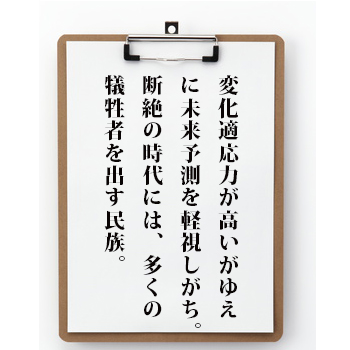 変化適応力が高いがゆえ
に未来予測を軽視しがち。
断絶の時代には、多くの
犠牲者を出す民族。